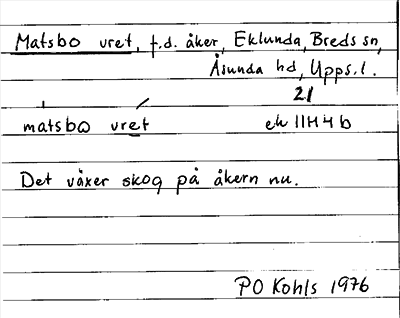 Matsbo vret, f.d. åker, Eklunda, Breds sn,
Åsunda hd, Upps.l.
21
matsbω vret ek 11H4b
Det växer skog på åkern nu.
PO Kohls 1976